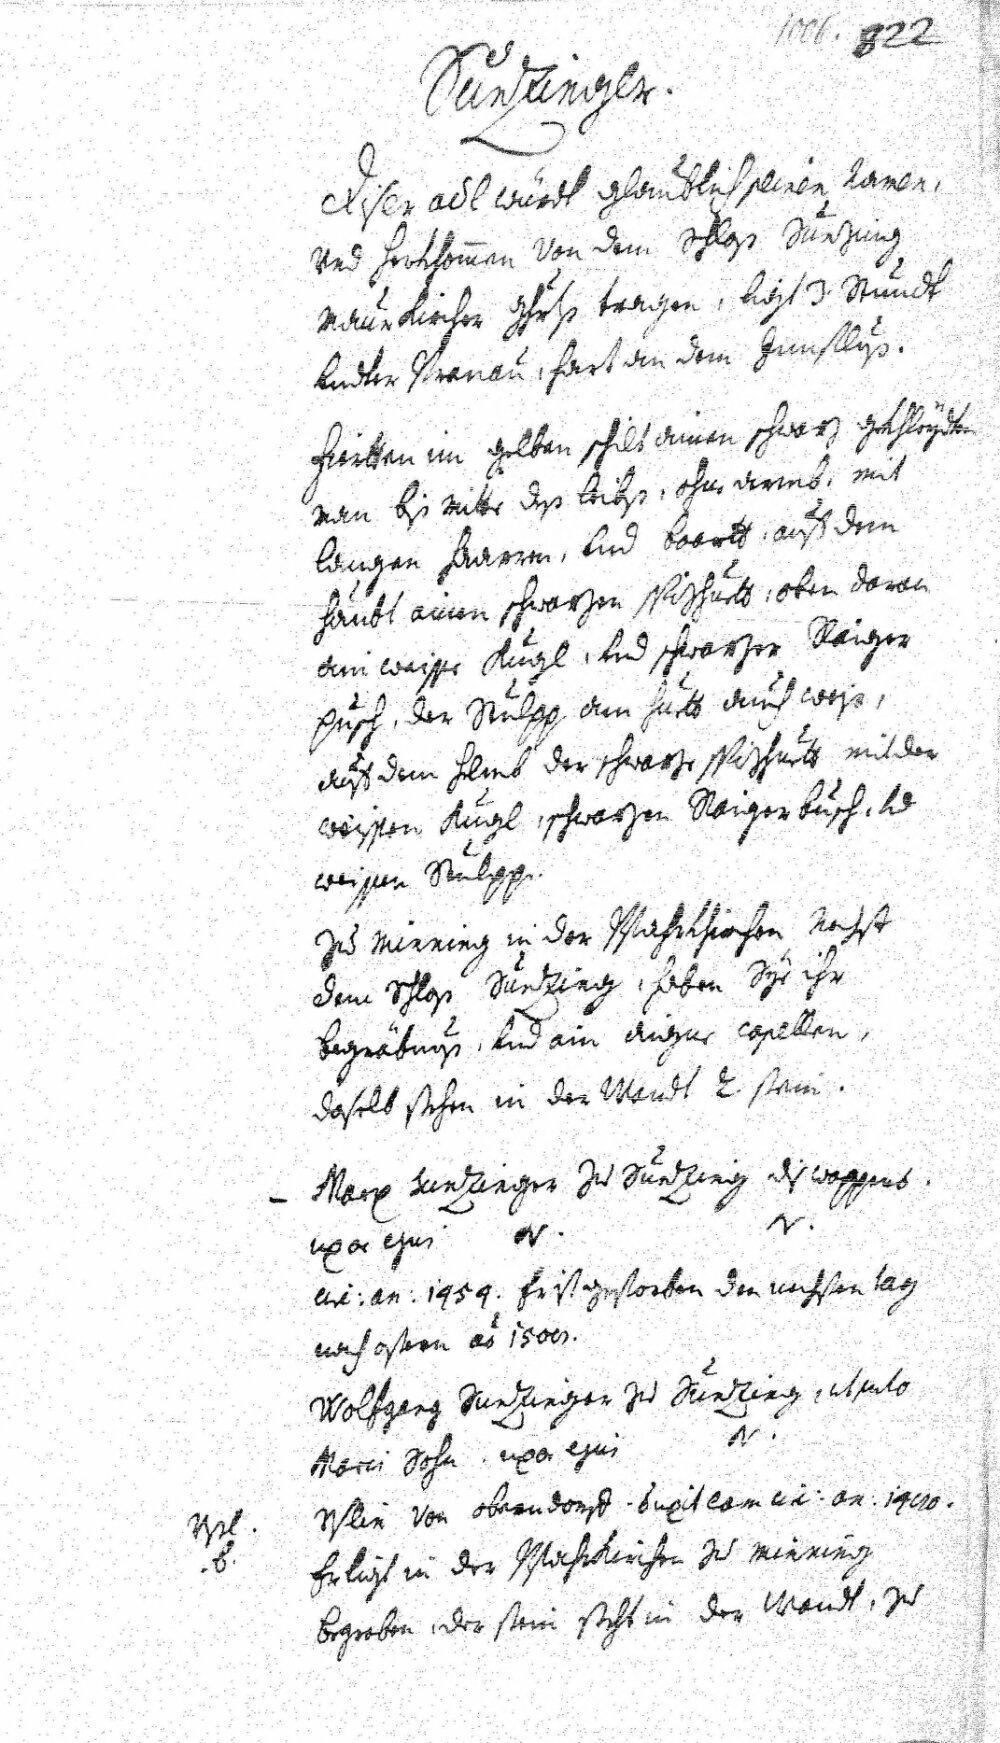 1006. 822
Sunzinger.
Diser adl würdt glaublich seinen Namen,
und herkhommen von dem Schlos Sünzing
Maurkircher Ghrts tragen, ligt 3 Stundt
undter Pranau, hart an dem Innflus.
Fierten im gelben schilt ainen schwarz gekhleydten
man bis mitte des leibs, ohne armb, mit
langen haaren, und baartt, auf dem
haubt ainen schwarzen Spizhuett, oben daran
ain weisse Kugl, und schwarzen Raiger
pusch, der Stulpp am huett auch weis,
auf dem helmb der schwarze Spizhuett mit der
weissen Kugl, schwarzen Raiger busch, und
weissen Stulpp.
Zu Minning in der Pfahrkhirchen nechst
dem Schlos Sünzing, haben Sye ihr
begräbnus, und ain aigne capellen,
daselb stehen in der Wandt 2 stain.
– Marx Sunzinger zu Sünzing dis wappens.
uxor eius N. N.
vix: an: 1459. Er ist gestorben den nechsten tag
nach ostern ao 150
Wolfgang Sunzinger zu Sünzing, ut puto
Marci Sohn. uxor eius N.
von oberndorff. duxit eam vix: an:
Er ligt in der Pfahrkirchen zu Minning
begraben, der stain steht in der Wandt, zu